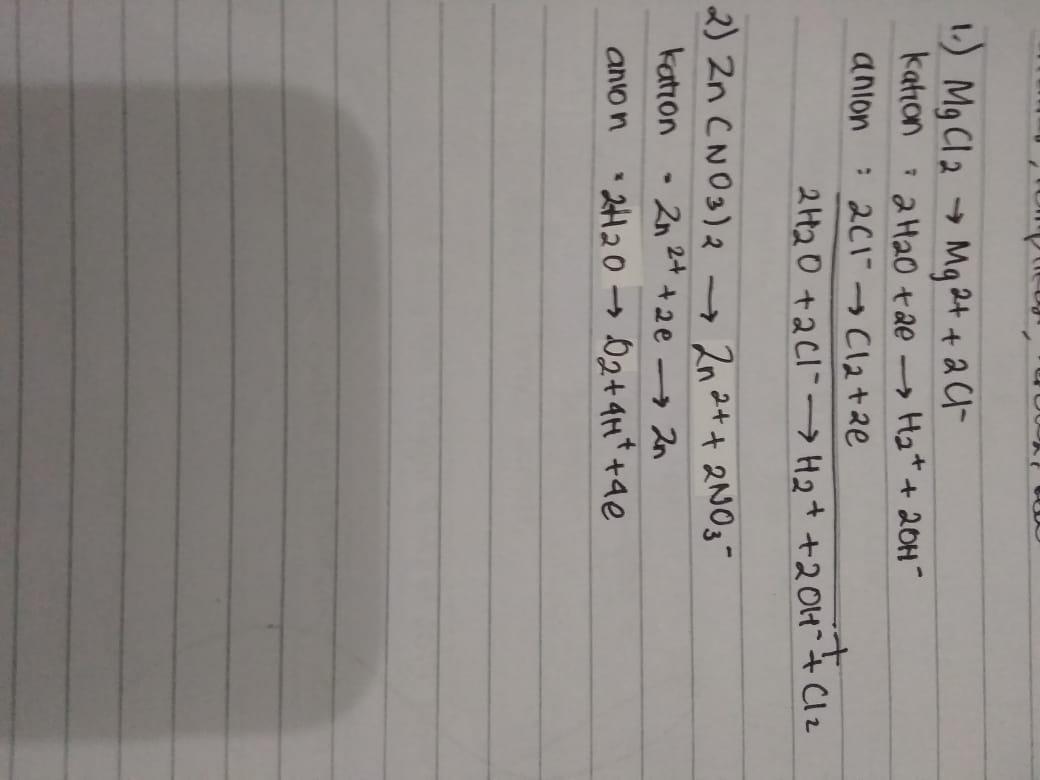 1.) MgCl2 → Mg2+ + 2Cl-
kation : 2H2O + 2e → H2+ + 2OH-
anion : 2Cl- → Cl2 + 2e
+
2H2O + 2Cl- → H2+ + 2OH- + Cl2
2) Zn(NO3)2 → Zn2+ + 2NO3-
kation = Zn2+ + 2e → Zn
anion = 2H2O → O2 + 4H+ + 4e